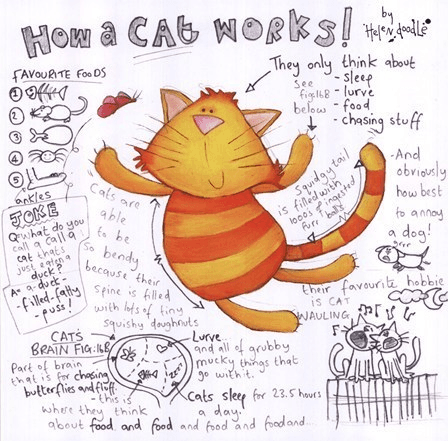 How a CAT WORKS!
by
Helen doodle
FAVOURITE FOODS
1
2
3
4
5
ankles
They only think about
- sleep
- lurve
- food
- chasing stuff
See
fig:16B
below
- And
obviously
how best
to annoy
a dog!
grrr
Squidgy tail
is filled with
1000s of
furr balls
Cats are
able
to be
so bendy
because their
spine is filled
with lots of tiny
squishy doughnuts
JOKE
Q= what do you
call a call a
cat that's
just eaten a
duck?
A= a duck -
- filled - fatty
- puss!
their favourite hobbie
is CAT
WAULING
CATS
BRAIN FIG:16B
Part of brain
that is for chasing
butterflies and fluff.
- this is
where they think
about food and food and food and food and...
Lurve...
and all of grubby
mucky things that
go with it.
Cats sleep for 23.5 hours
a day!